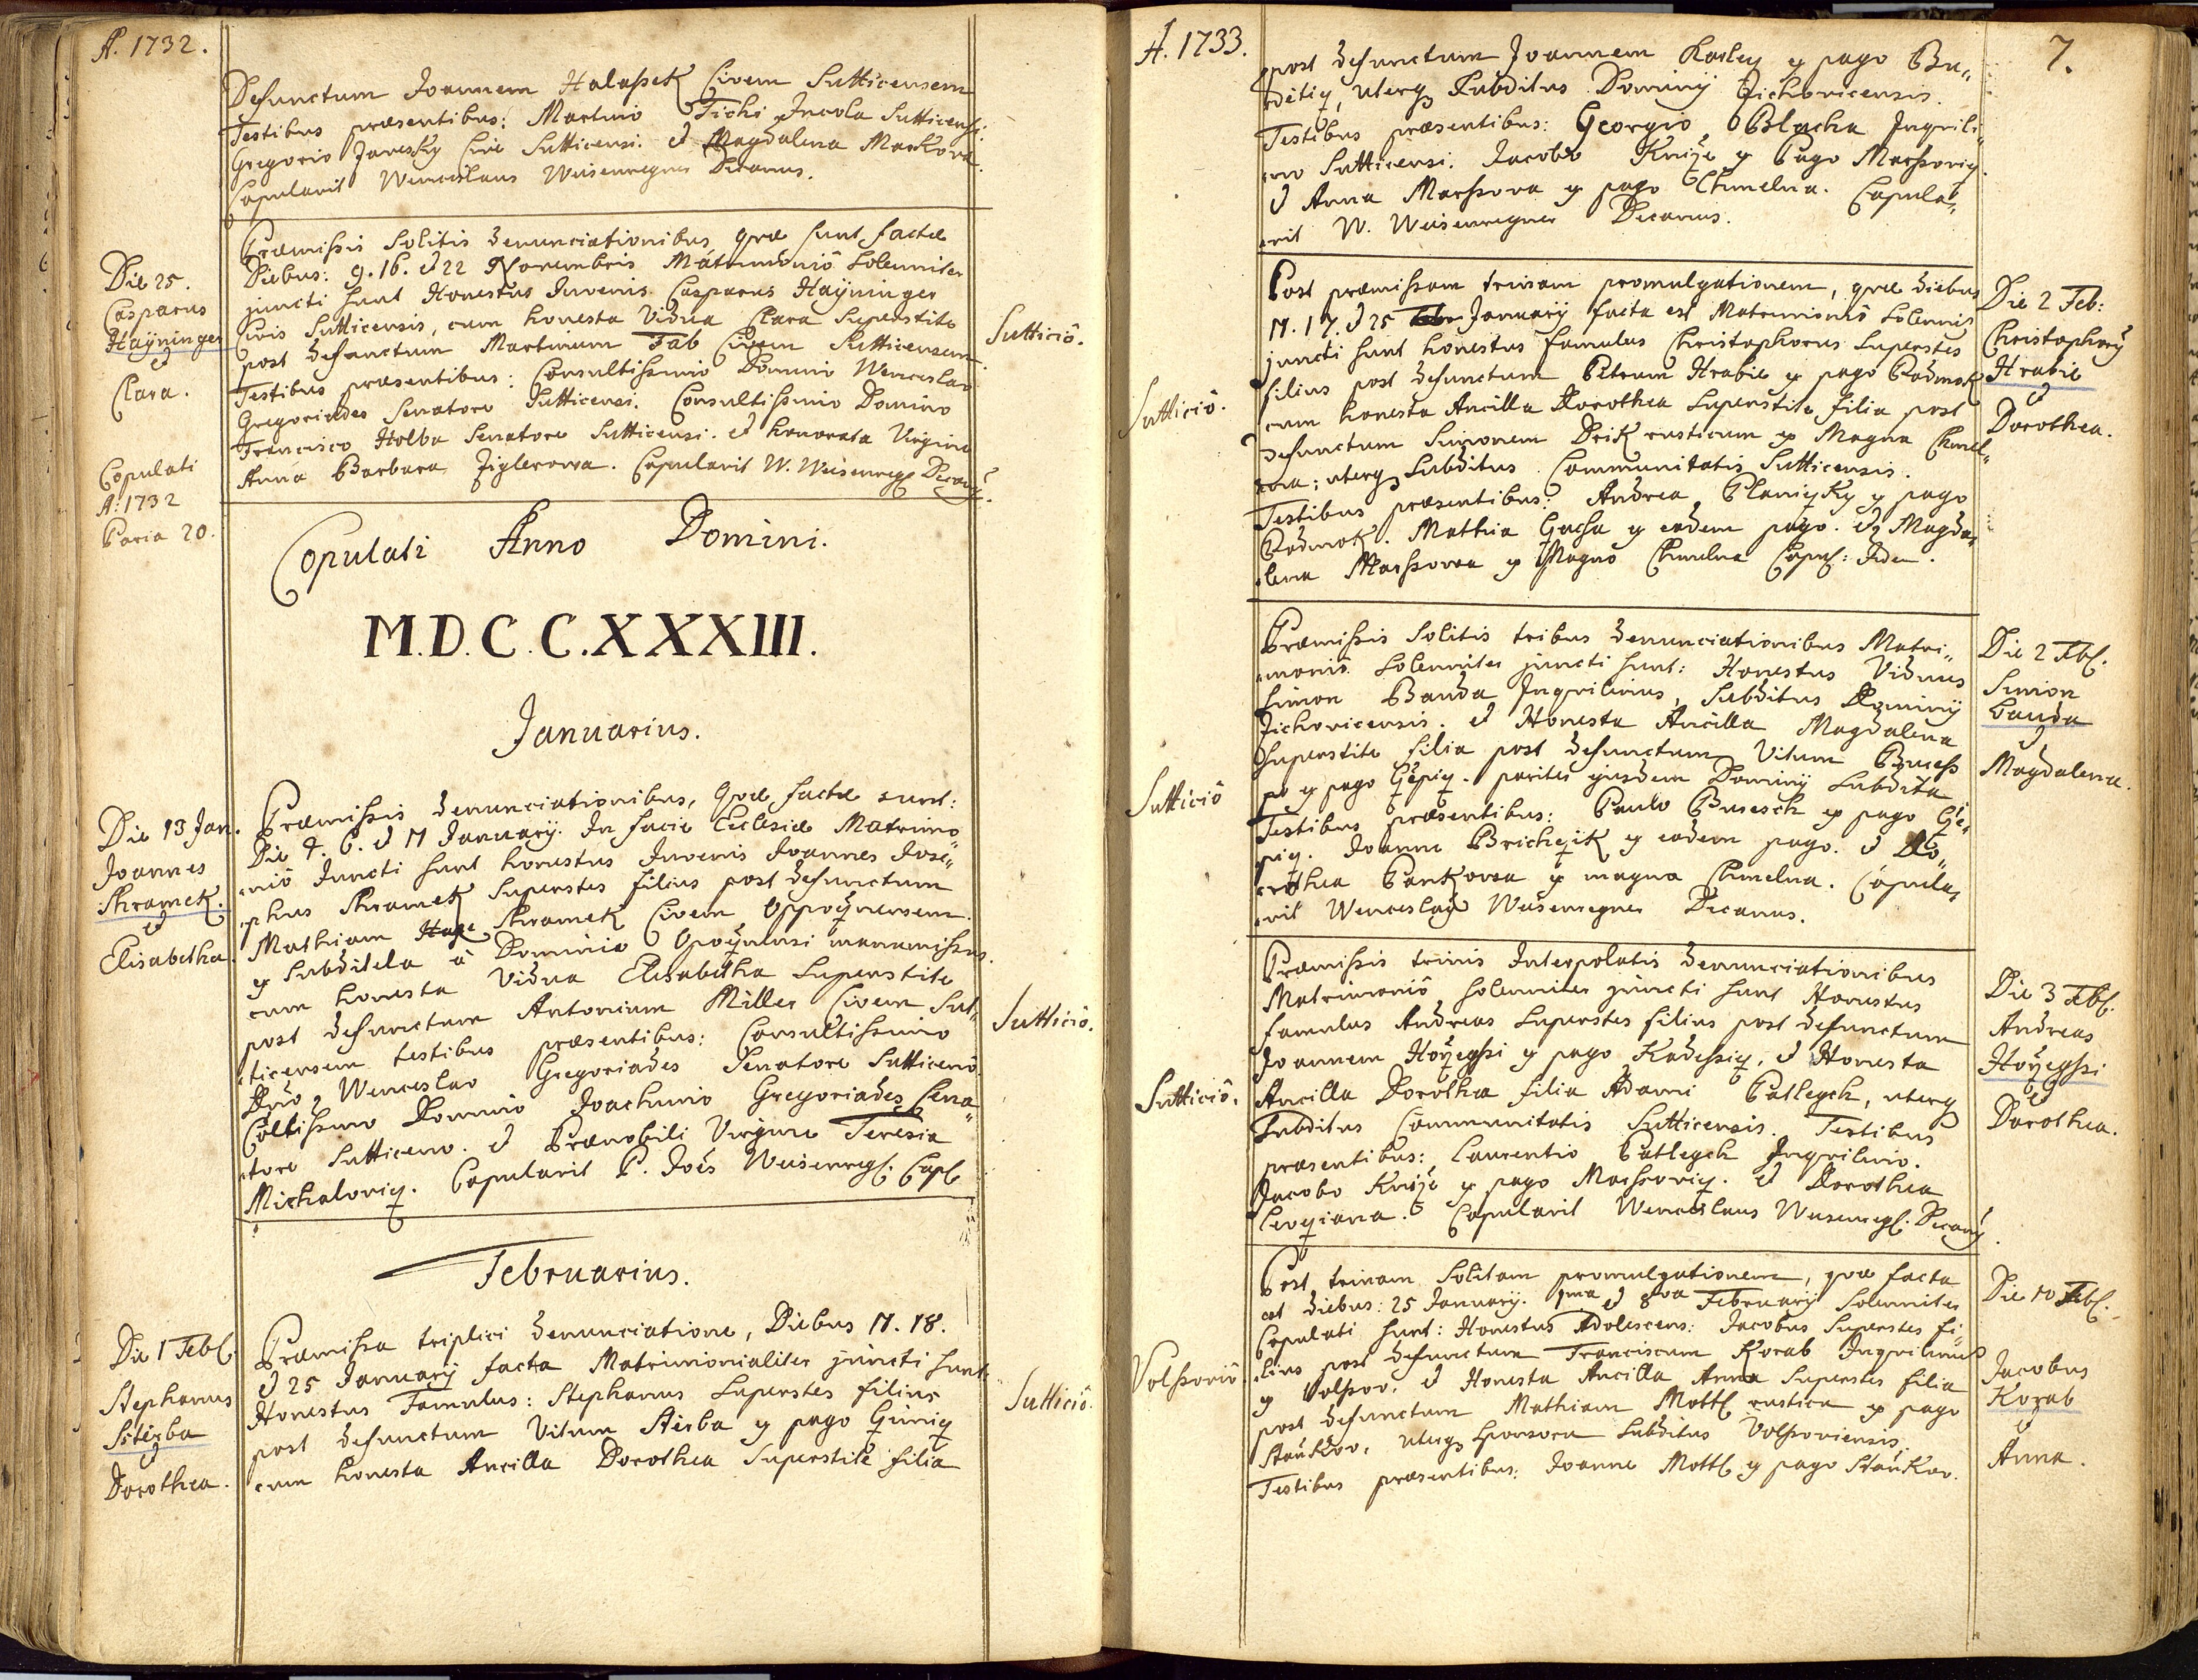 A. 1732.
Defunctum Joannem Halaßek Civem Sutticensem
Testibus præsentibus: Martino Tichi Incola Sutticensi.
Gregorio Janesky Cive Sutticensi. et Magdalena Markova.
Copulavit Wenceslaus Weisenregner Decanus.
Die 25.
Casparus
Haÿninger
et
Clara.
Præmißis solitis denunciationibus quæ sunt factæ
Diebus: 9. 16. et 22 Novembris Matrimoniô solenniter
juncti sunt Honestus Juvenis Casparus Haÿninger
Civis Sutticensis, cum honesta Vidua Clara superstite
post defunctum Martinum Fab Civem Sutticensem.
Testibus præsentibus: Consultißimo Domino Wenceslao
Gregoriades Senatore Sutticensi. Consultißimo Domino
Francisco Holba Senatore Sutticensi. et honorata Virgine
Anna Barbara Ziglerowa. Copulavit W. Weisenreg Decanus.
Sutticiô.
Copulati
A: 1732
Paria 20.
Copulati Anno Domini.
M.D.C.C.XXXIII.
Januarius.
Die 13 Jan.
Joannes
Shramek.
et
Elisabetha.
Præmißis denunciationibus, quæ factæ sunt:
Die 4. 6. et 11 Januarÿ. In facie Ecclesiæ Matrimo„
„niô Juncti sunt honestus Juvenis Joannes Jose„
„phus Shramek superstes filius post defunctum
Mathiam Shramek Civem Oppoÿnensem.
ex subditela â Dominio Opoÿnensi manumißus.
cum honesta Vidua Elisabetha superstite
post defunctum Antonium Miller Civem Sut„
„ticensem testibus præsentibus: Consultißimo
Dno Wenceslao Gregoriades Senatore Sutticenô.
Coltißimo Domino Joachimo Gregoriades Sena„
„tore Sutticeno. et Prænobili Virgine Teresia
Michaloviq. Copulavit P. Joês Weisenreg. Capl.
Sutticiô.
Februarius.
Die 1 Feb.
Stephanus
Ssterba
et
Dorothea.
Præmißa triplici denunciatione, Diebus 11. 18.
et 25 Januarÿ facta Matrimonialiter juncti sunt
Honestus Famulus: Stephanus superstes filius
post defunctum Vitum Sterba ex pago
cum honesta Ancilla Dorothea superstite filia
Sutticiô.
A. 1733.
7.
post defunctum Joannem ex pago Bu„
„detiq, uterq Subditus Dominÿ Zichovicensis.
Testibus præsentibus: Georgio Blacha Inquili„
„no Sutticensi. Jacobo Kniže ex Pago Marßoviq.
et Anna Marßova ex pago Chmelna. Copula„
„vit W. Weisenregner Decanus.
Sutticiô.
Post præmißam trinam promulgationem, quæ diebus
11. 17. et 25 Januarÿ facta est Matrimoniô solennis
juncti sunt honestus famulus Christophorus superstes
filius post defunctum Petrum Hrabie ex pago Podmok
cum honesta Ancilla Dorothea superstite filia post
defunctum Simonem Drik rusticum ex Magna Chmel„
„na: uterq Subditus Communitatis Sutticensis.
Testibus præsentibus: Andrea ex pago
Podmok. Mathia ex eodem pago. et Magda„
„lena Marßowa ex Magno Chmelna Copul: Idem.
Die 2 Feb:
Christophorus
Hrabie
et
Dorothea.
Sutticiô
Præmißis solitis tribus denunciationibus Matri„
„moniô solenniter juncti sunt: Honestus Viduus
Simon Banda Inquilinus, subditus Dominÿ
Zichovicensis. et Honesta Ancilla Magdalena
superstite filia post defunctum Vitum
ex pago pariter ejusdem Dominÿ Subdita
Testibus præsentibus: Paulo ex pago
Joanne ex eodem pago. et Do„
„rothea Pankowa ex magna Chmelna. Copula„
„vit Wenceslaus Weisenregner Decanus.
Die 2 Feb.
Simon
Banda
et
Magdalena.
Sutticiô.
Præmißis trinis Interpolatis denunciationibus
Matrimoniô solenniter juncti sunt Honestus
famulus Andreas superstes filius post defunctum
Joannem ex pago Kadeßiq, et Honesta
Ancilla Dorothea filia Adami Patlegch, uterq
Subditus Communitatis Sutticensis. Testibus
præsentibus: Laurentio Patlegch Inquilino.
Jacobo Kniže ex pago Marßoviq. et Dorothea
Copulavit Wenceslaus Weisenreg. Decanus.
Die 3 Feb.
Andreas
et
Dorothea.
Volßoviô
Post trinam solitam promulgationem, quæ facta
est diebus: 25 Januarÿ. 1ma et 8va Februarÿ solenniter
Copulati sunt: Honestus Adolescens: Jacobus superstes fi„
„lius post defunctum Franciscum Korab Inquilinus
ex Volßov. et Honesta Ancilla Anna superstes filia
post defunctum Mathiam Mottl rustica ex pago
Stankov. uterq sponsorum subditus Volßoviensis.
Testibus præsentibus: Joanne Mottl ex pago Stankov.
Die 10 Feb.
Jacobus
Korab
et
Anna.